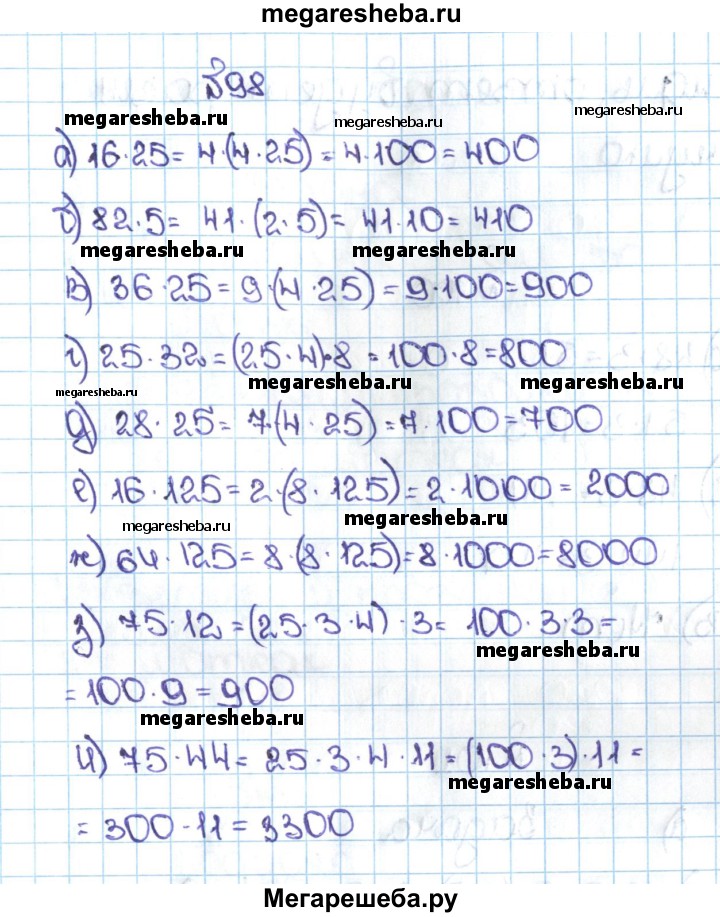 megaresheba.ru
№98
megaresheba.ru megaresheba.ru megaresheba.ru
а) 16·25= 4·(4·25) = 4·100=400
б) 82·5= 41·(2·5)= 41·10=410
megaresheba.ru megaresheba.ru
в) 36·25=9·(4·25)=9·100=900
г) 25·32=(25·4)·8 =100·8=800
megaresheba.ru megaresheba.ru megaresheba.ru
д) 28·25= 7·(4·25)=7·100=700
е) 16·125=2·(8·125)=2·1000= 2000
megaresheba.ru megaresheba.ru
ж) 64·125=8·(8·125)=8·1000=8000
з) 75·12=(25·3·4)·3= 100·3·3=
megaresheba.ru
=100·9=900
megaresheba.ru
и) 75·44= 25·3·4·11=(100·3)·11=
megaresheba.ru
= 300·11=3300
Мегарешеба.ру